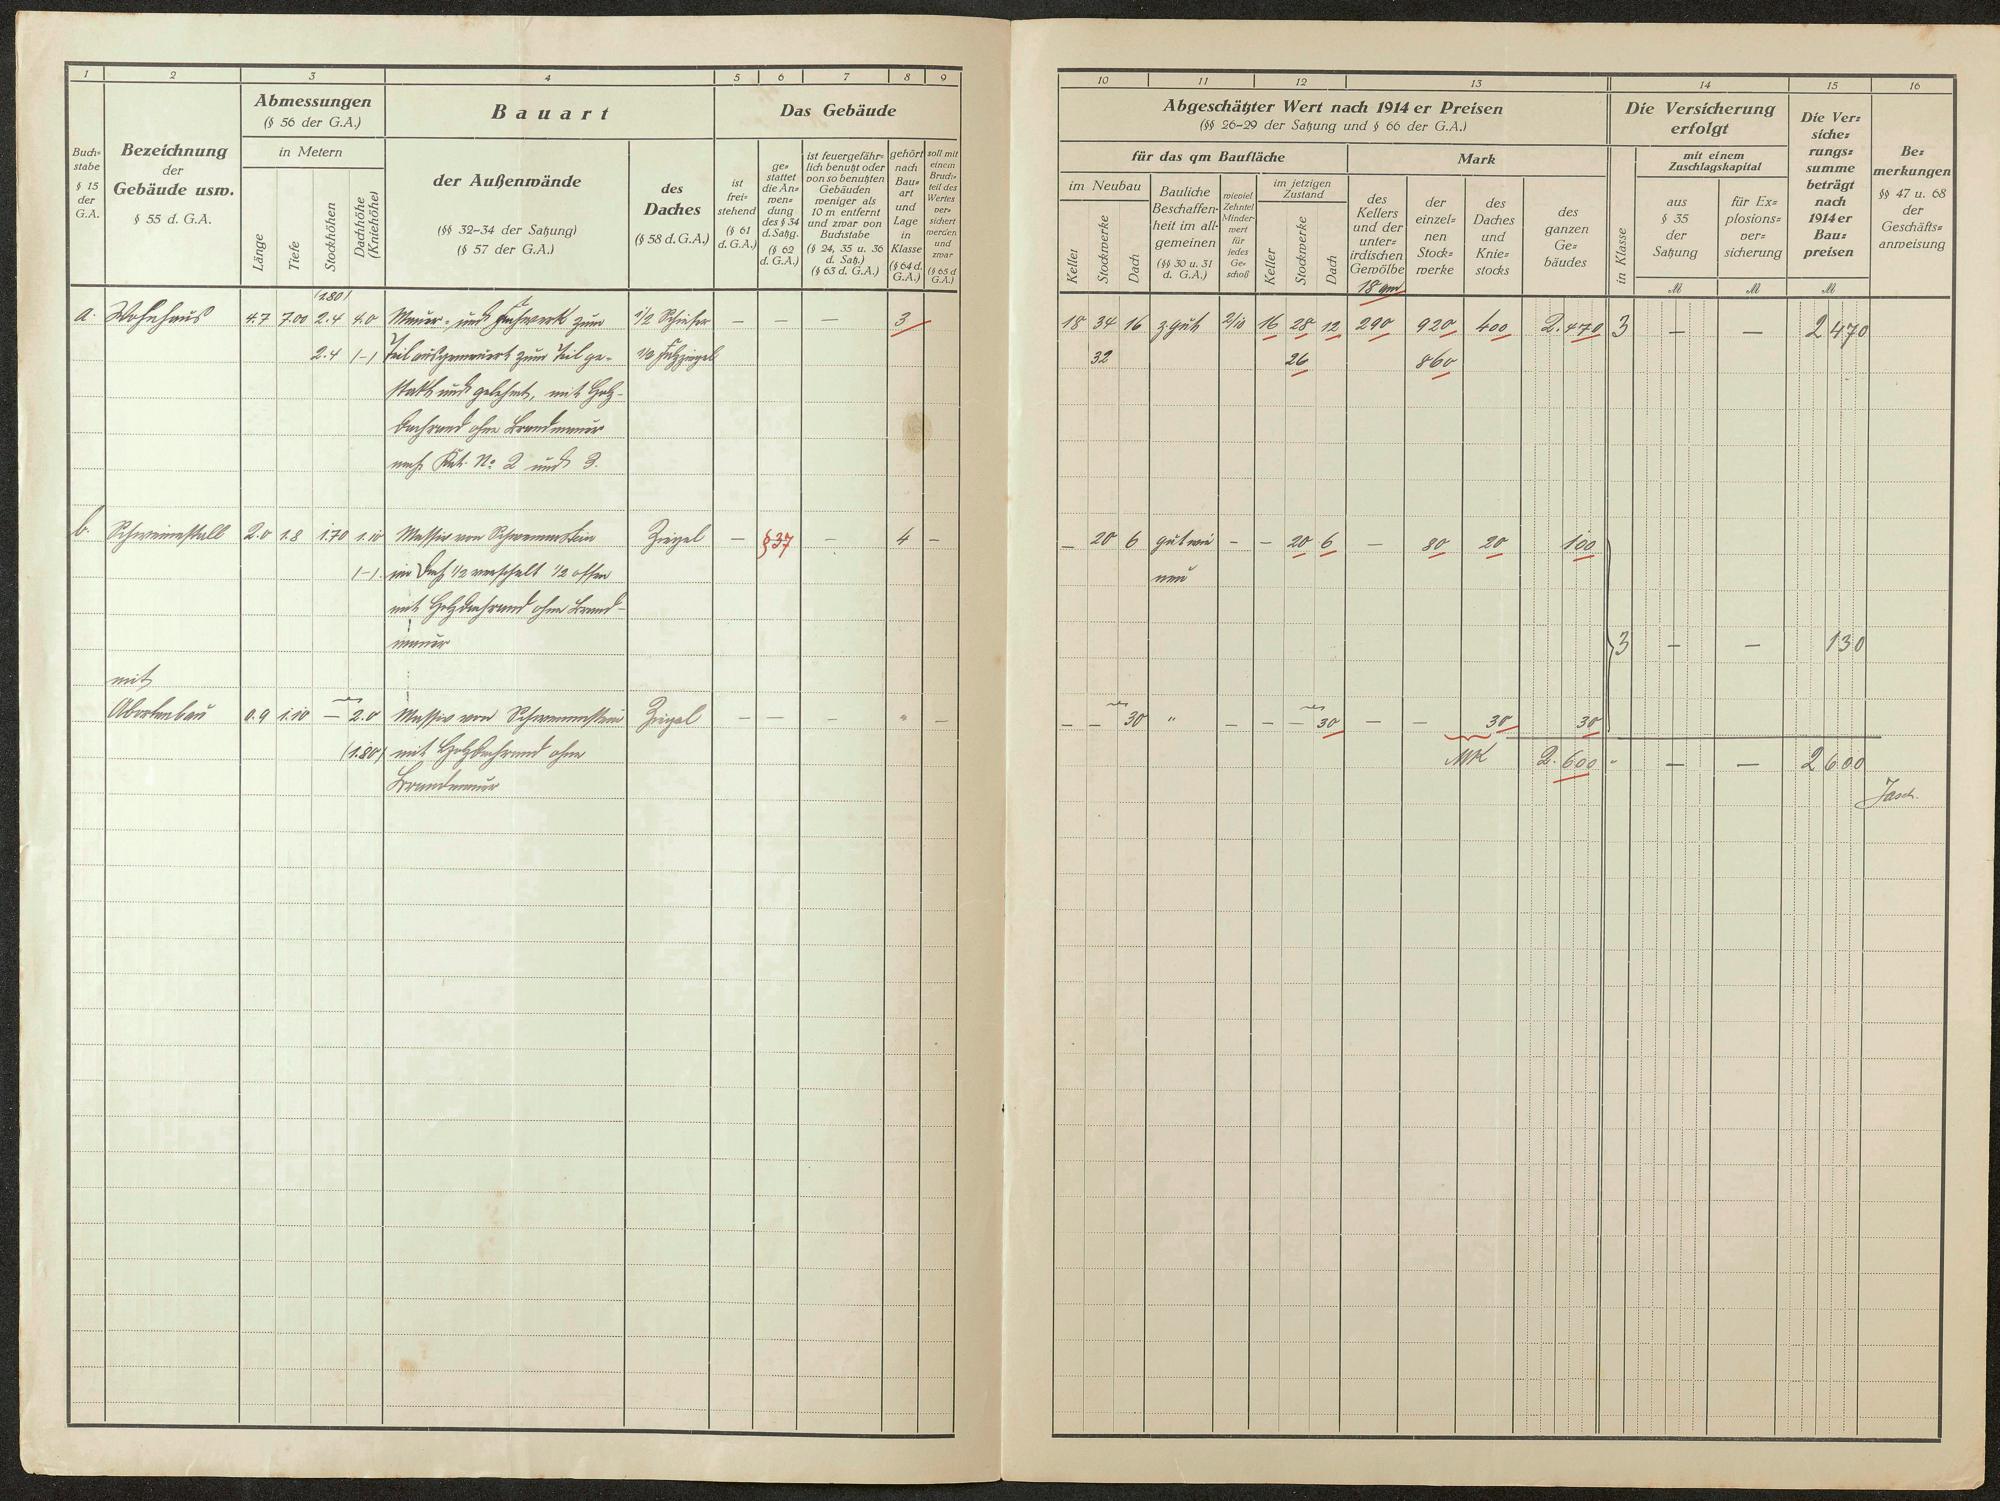 1 2 3 4 5 6 7 8 9
Buch=
stabe
§ 15
der
G.A.
Bezeichnung
der
Gebäude usw.
§ 55 d. G.A.
Abmessungen
(§ 56 der G.A.)
in Metern
Länge
Tiefe
Stockhöhen
Dachhöhe
(Kniehöhe)
Bauart
der Außenwände
(§§ 32–34 der Satzung)
(§ 57 der G.A.)
des
Daches
(§ 58 d. G.A.)
Das Gebäude
ist
frei=
stehend
(§ 61
d. G.A.)
ge=
stattet
die An=
wen=
dung
des § 34
d. Satzg.
(§ 62
d. G.A.)
ist feuergefähr=
lich benutzt oder
von so benutzten
Gebäuden
weniger als
10 m entfernt
und zwar von
Buchstabe
(§ 24, 35 u. 36
d. Satz.)
(§ 63 d. G.A.)
gehört
nach
Bau=
art
und
Lage
in
Klasse
(§ 64 d.
G.A.)
soll mit
einem
Bruch=
teil des
Wertes
ver=
sichert
werden
und
zwar
(§ 65 d
G.A.)
(1.80)
a. Wohnhaus 4.7 7.00 2.4 4.0 Mauer- und Fachwerk zum 1/2 Schiefer — — — 3
2.4 (–) Teil ausgemauert zum Teil ge- 1/2 Falzziegel
stakt und gelehmt, mit Holz-
dachrand ohne Brandmauer
nach Kat. No 2 und 3.
b. Schweinestall 2.0 1.8 1.70 1.10 Massiv von Schwemmstein Ziegel — § 37 — 4 —
(–) im Dach 1/2 verschalt 1/2 offen
mit Holzdachrand ohne Brand-
mauer
mit
Abortanbau 0.9 1.10 — 2.0 Massiv von Schwemmstein Ziegel — — — " —
(1.80) mit Holzdachrand ohne
Brandmauer
10 11 12 13 14 15 16
Abgeschätzter Wert nach 1914 er Preisen
(§§ 26–29 der Satzung und § 66 der G.A.)
für das qm Baufläche
im Neubau
Keller
Stockwerke
Dach
Bauliche
Beschaffen=
heit im all=
gemeinen
(§§ 30 u. 31
d. G.A.)
wieviel
Zehntel
Minder=
wert
für
jedes
Ge=
schoß
im jetzigen
Zustand
Keller
Stockwerke
Dach
Mark
des
Kellers
und der
unter=
irdischen
Gewölbe
der
einzel=
nen
Stock=
werke
des
Daches
und
Knie=
stocks
des
ganzen
Ge=
bäudes
Die Versicherung
erfolgt
in Klasse
mit einem
Zuschlagskapital
aus
§ 35
der
Satzung
für Ex=
plosions=
ver=
sicherung
Die Ver=
siche=
rungs=
summe
beträgt
nach
1914 er
Bau=
preisen
Be=
merkungen
§§ 47 u. 68
der
Geschäfts=
anweisung
M M M
18 qm
18 34 16 z. gut 2/10 16 28 12 290 920 400 2.470 3 — — 2470
32 26 860
— 20 6 gut wie — — 20 6 — 80 20 100
neu
3 — — 130
— — 30 " — — — 30 — — 30 30
MK 2.600 - — — 2600